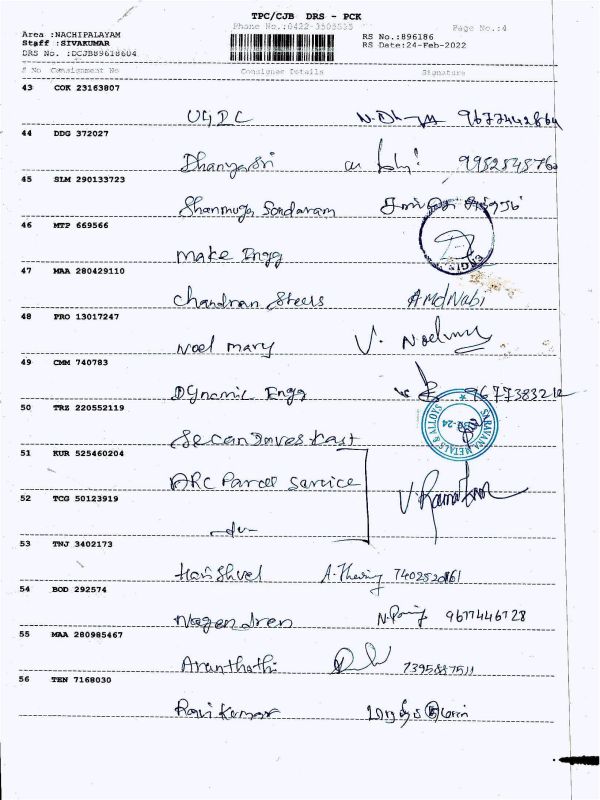 TPC/CJB DRS - PCK
Phone No.:0422-3508525
Page No.:4
Area :NACHIPALAYAM
Staff :SIVAKUMAR
DRS No. :DCJB89618604
RS No.:896186
RS Date:24-Feb-2022
# No Consignment No Consignee Details Signature
43 COK 23163807
9677442864
44 DDG 372027
Dhanya Sri 9952545760
45 SLM 290133723
Shanmuga Sundaram
46 MTP 669566
Make Engg
47 MAA 280429110
Chandran Steels AMdNabi
48 PRO 13017247
Noel mary V. Noelmary
49 CMM 740783
Dynamic Engg 9677383212
50 TRZ 220552119
SARAVANA METALS & ALLOYS
51 KUR 525460204
ARC Parcel Service
52 TCG 50123919
53 TNJ 3402173
Harishvel
54 BOD 292574
Nagendren 9677446728
55 MAA 280985467
7395887511
56 TEN 7168030
Ravi Kumar